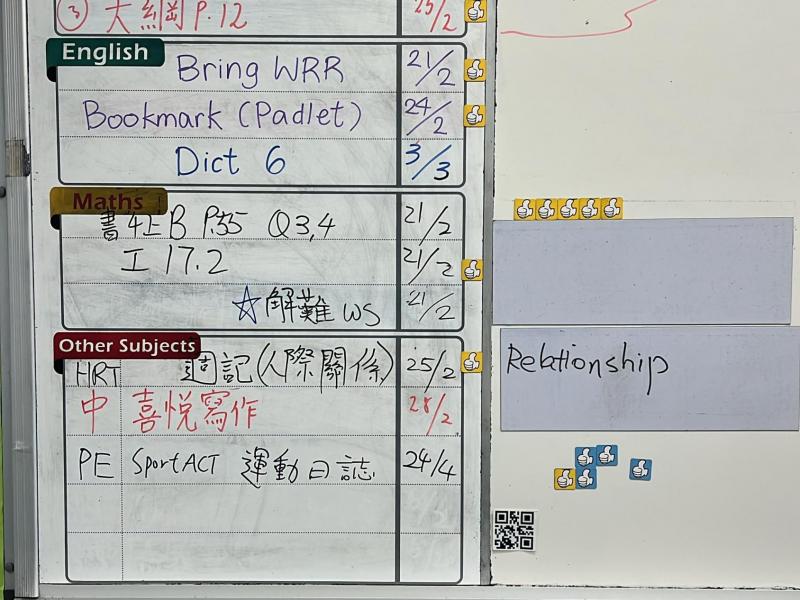 ③ 大綱 P.12 25/2
English
Bring WRR 21/2
Bookmark (Padlet) 24/2
Dict 6 3/3
Maths
書4上B P.55 Q3,4 21/2
工 17.2 21/2
☆解難 WS 21/2
Other Subjects
HRT 週記(人際關係) 25/2
中 喜悅寫作 28/2
PE SportACT 運動日誌 24/4
Relationship